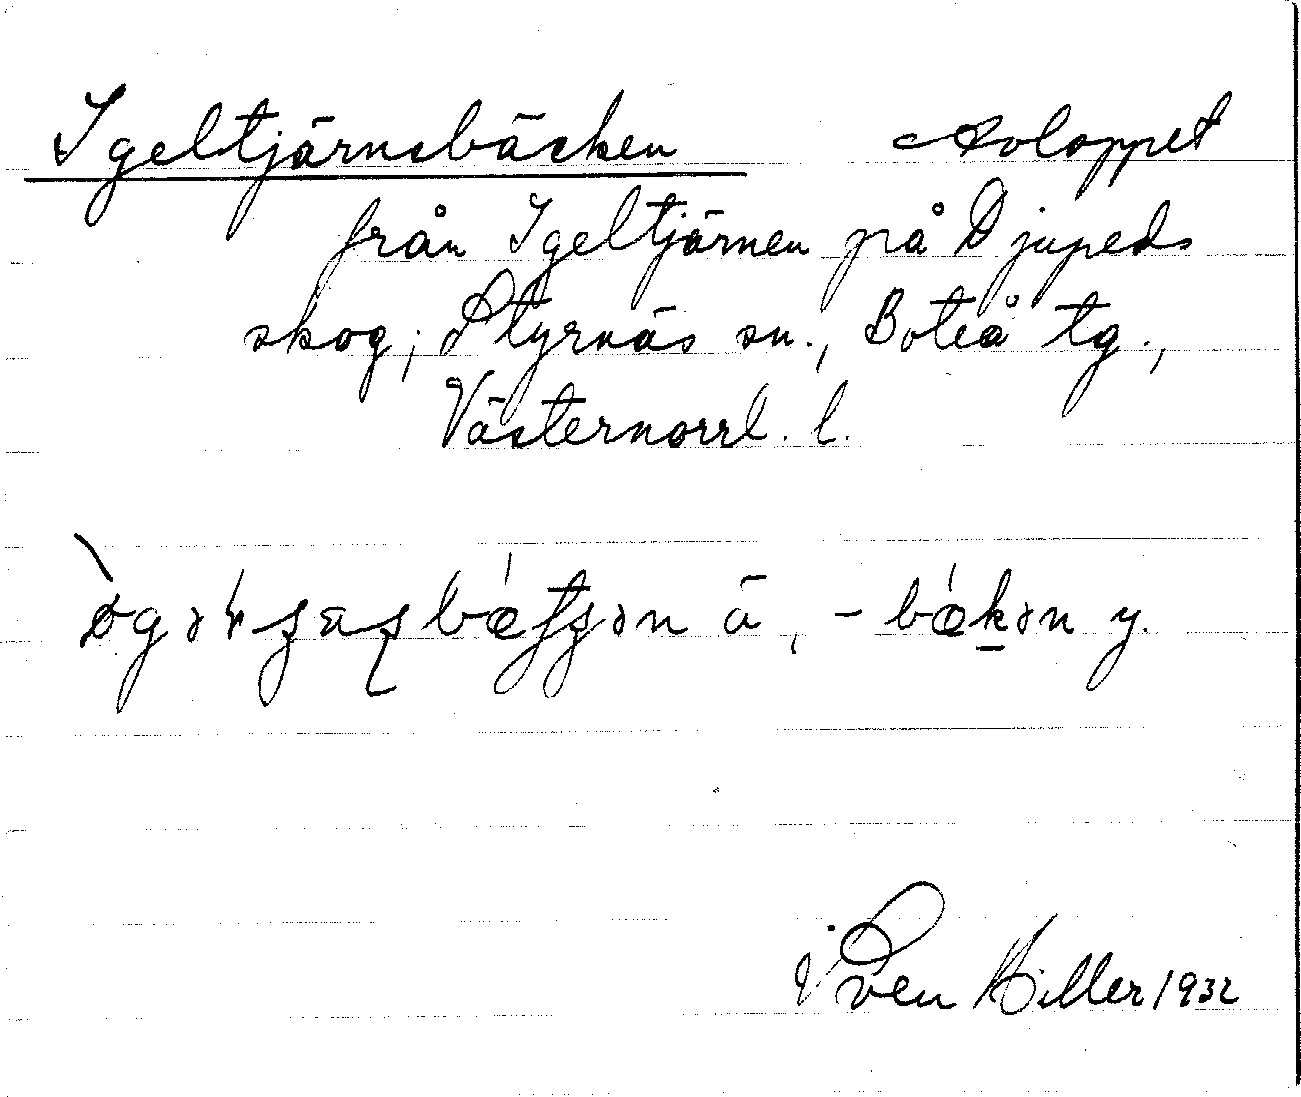 Igeltjärnsbäcken Avloppet
från Igeltjärnen på Djupeds
skog; Styrnäs sn., Boteå tg.,
Västernorrl. l.
ä, - y.
Sven Hiller 1932